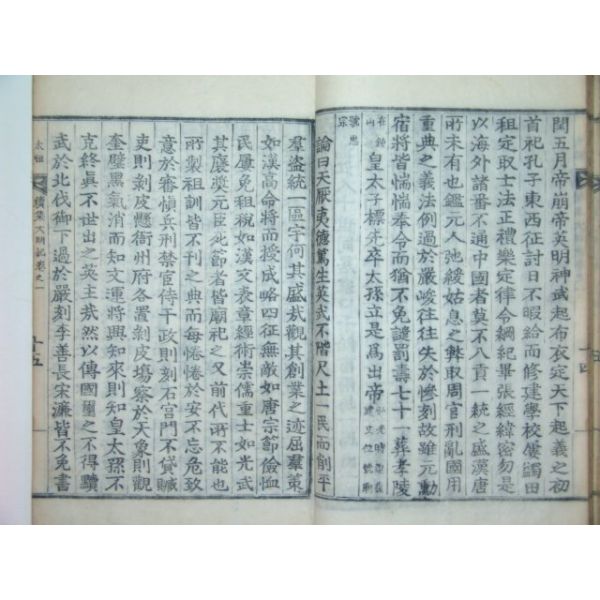 閏五月帝崩帝英明神武起布衣定天下起義之初
首祀孔子東西征討日不暇給而修建學校屢蠲田
租定取士法正禮樂定律令綱紀畢張經緯密勿是
以海外諸番不通中國者莫不八貢一統之盛漢唐
所未有也鑑元人弛緩姑息之弊取周官刑亂國用
重典之義法例過於嚴峻往往失於慘刻故雖元勳
宿將皆惴惴奉令而猶不免譴罰壽七十一葬孝陵
在鍾山 皇太子標先卒太孫立是爲出帝
號思宗
論曰天厭夷德篤生英武不階尺土一民而削平
羣盜統一區宇何其盛哉觀其創業之迹屈羣策
如漢高命將而授成略四征無敵如唐宗節儉恤
民屢免租稅如漢文表章經術崇儒重士如光武
其褒奬元臣此節者皆廟祀之又前代所不能也
所製祖訓皆不刊之典而每惓惓於安不忘危致
意於審愼兵刑禁宦侍干政則刻石宮門不貸贓
吏則剥皮懸衙州府各置剥皮塲察於天象則觀
奎璧黑氣消而知文運將興知來則知皇太孫不
克終眞不世出之英主哉然以傳國璽之不得黷
武於北伐御下過於嚴刻李善長宋濂皆不免書
太祖
續柴大明記卷之一
十五
十四